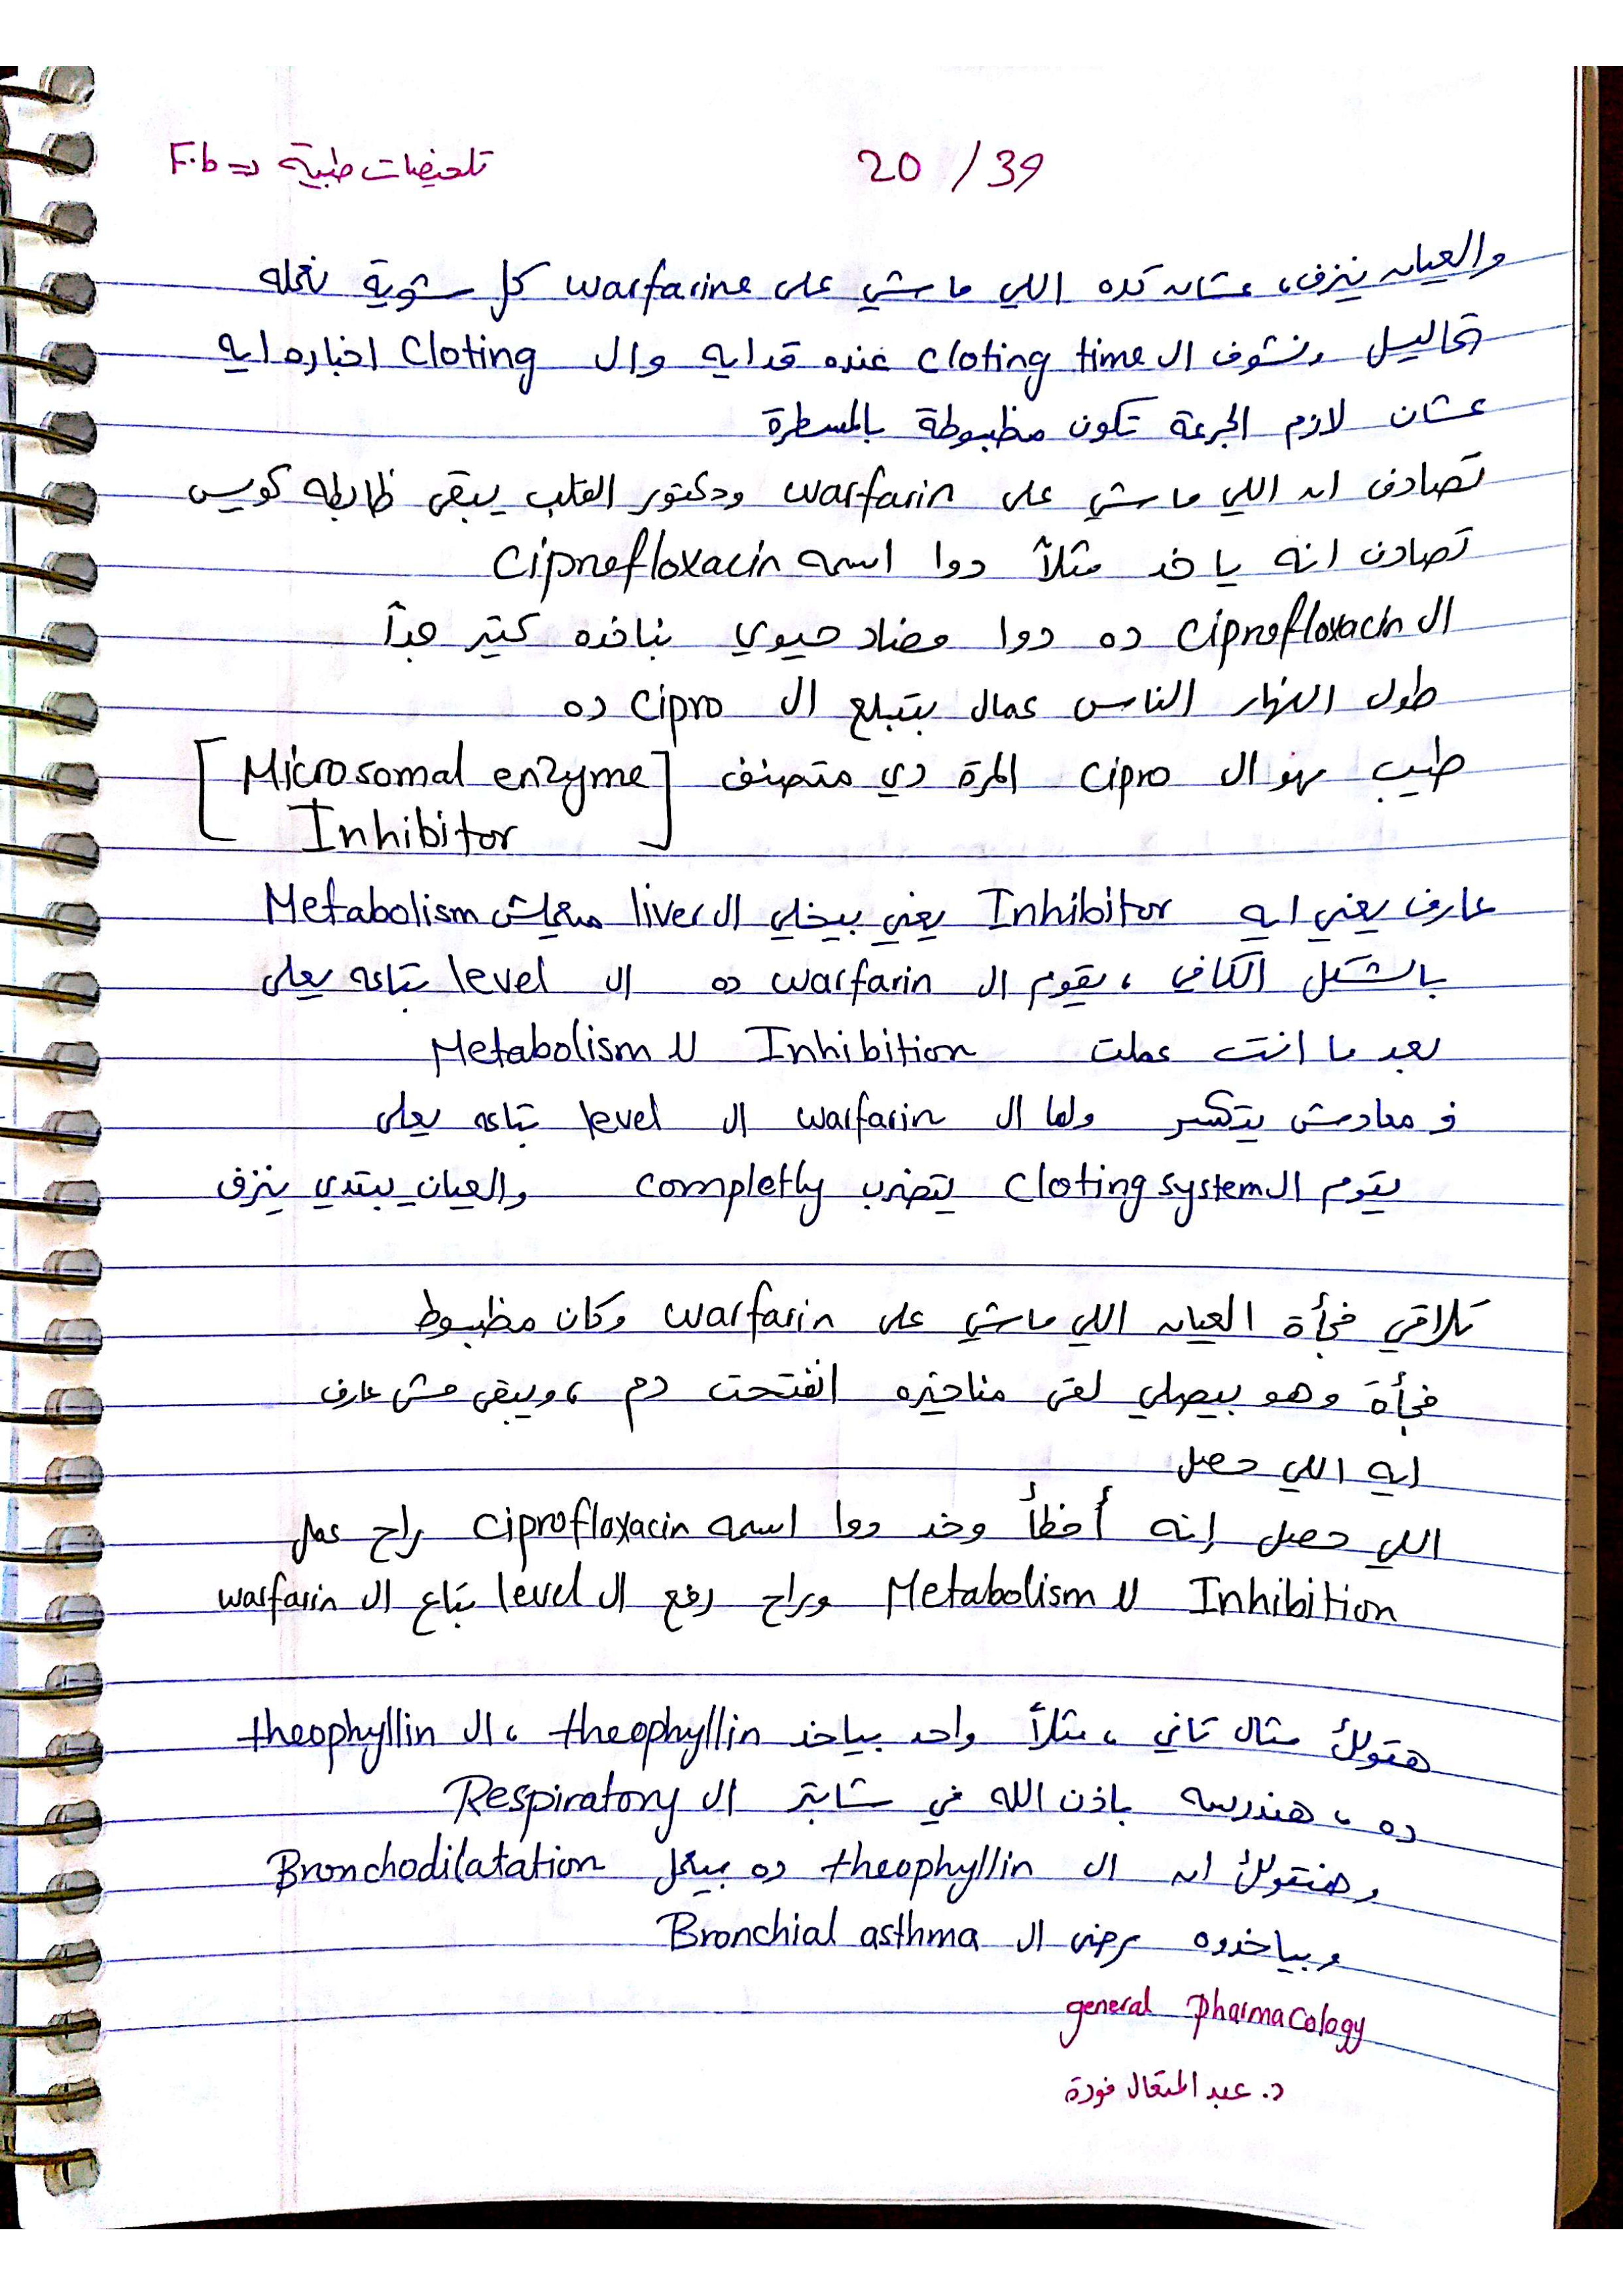 20 / 39
تلخيصات طبية => F.b
والعيان ينزف، عشان كده اللي ماشي على warfarine كل شوية نعمله
تحاليل ونشوف ال cloting time عنده قد ايه وال Cloting اخباره ايه
عشان لازم الجرعة تكون مظبوطة بالمسطرة
تصادف ان اللي ماشي على warfarin ودكتور القلب يبقى ظابطه كويس
تصادف انه ياخد مثلاً دوا اسمه Ciprofloxacin
ال Ciprofloxacin ده دوا مضاد حيوي بناخده كتير جداً
طول النهار الناس عمال بتبلع ال Cipro ده
طيب مهو ال Cipro المرة دي متصنف [Microsomal enzyme
Inhibitor]
عارف يعني ايه Inhibitor يعني بيخلي ال liver ميعملش Metabolism
بالشكل الكافي، يقوم ال warfarin ده ال level بتاعه يعلى
بعد ما انت عملت Inhibition لل Metabolism
ف معادش يتكسر ولما ال warfarin ال level بتاعه يعلى
يقوم ال Cloting system يتضرب completly والعيان يبتدي ينزف
تلاقي فجأة العيان اللي ماشي على warfarin وكان مظبوط
فجأة وهو بيصلي لقى مناخيره اتفتحت دم، ويبقى مش عارف
ايه اللي حصل
اللي حصل إنه أخطأ وخد دوا اسمه Ciprofloxacin راح عمل
Inhibition لل Metabolism وراح رفع ال level بتاع ال warfarin
هقولك مثال تاني، مثلاً واحد بياخد theophyllin، ال theophyllin
ده، هندرسه باذن الله في شابتر ال Respiratory
وهنقولك ان ال theophyllin ده بيعمل Bronchodilatation
وبياخدوه مرضى ال Bronchial asthma
general pharmacology
د. عبد المتعال فودة